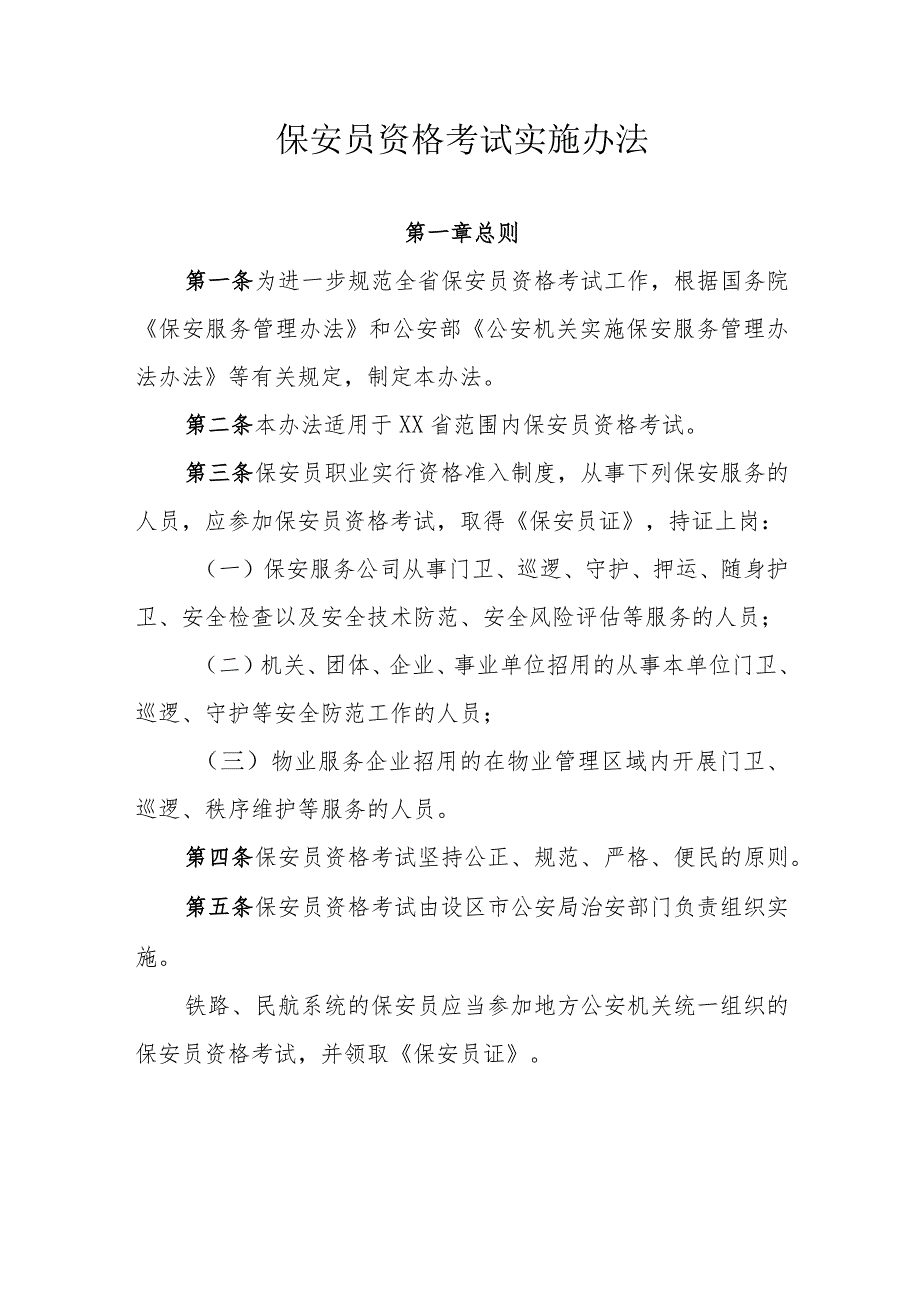 保安员资格考试实施办法
第一章总则
第一条为进一步规范全省保安员资格考试工作，根据国务院
《保安服务管理办法》和公安部《公安机关实施保安服务管理办
法办法》等有关规定，制定本办法。
第二条本办法适用于 XX 省范围内保安员资格考试。
第三条保安员职业实行资格准入制度，从事下列保安服务的
人员，应参加保安员资格考试，取得《保安员证》，持证上岗：
（一）保安服务公司从事门卫、巡逻、守护、押运、随身护
卫、安全检查以及安全技术防范、安全风险评估等服务的人员；
（二）机关、团体、企业、事业单位招用的从事本单位门卫、
巡逻、守护等安全防范工作的人员；
（三）物业服务企业招用的在物业管理区域内开展门卫、
巡逻、秩序维护等服务的人员。
第四条保安员资格考试坚持公正、规范、严格、便民的原则。
第五条保安员资格考试由设区市公安局治安部门负责组织实
施。
铁路、民航系统的保安员应当参加地方公安机关统一组织的
保安员资格考试，并领取《保安员证》。